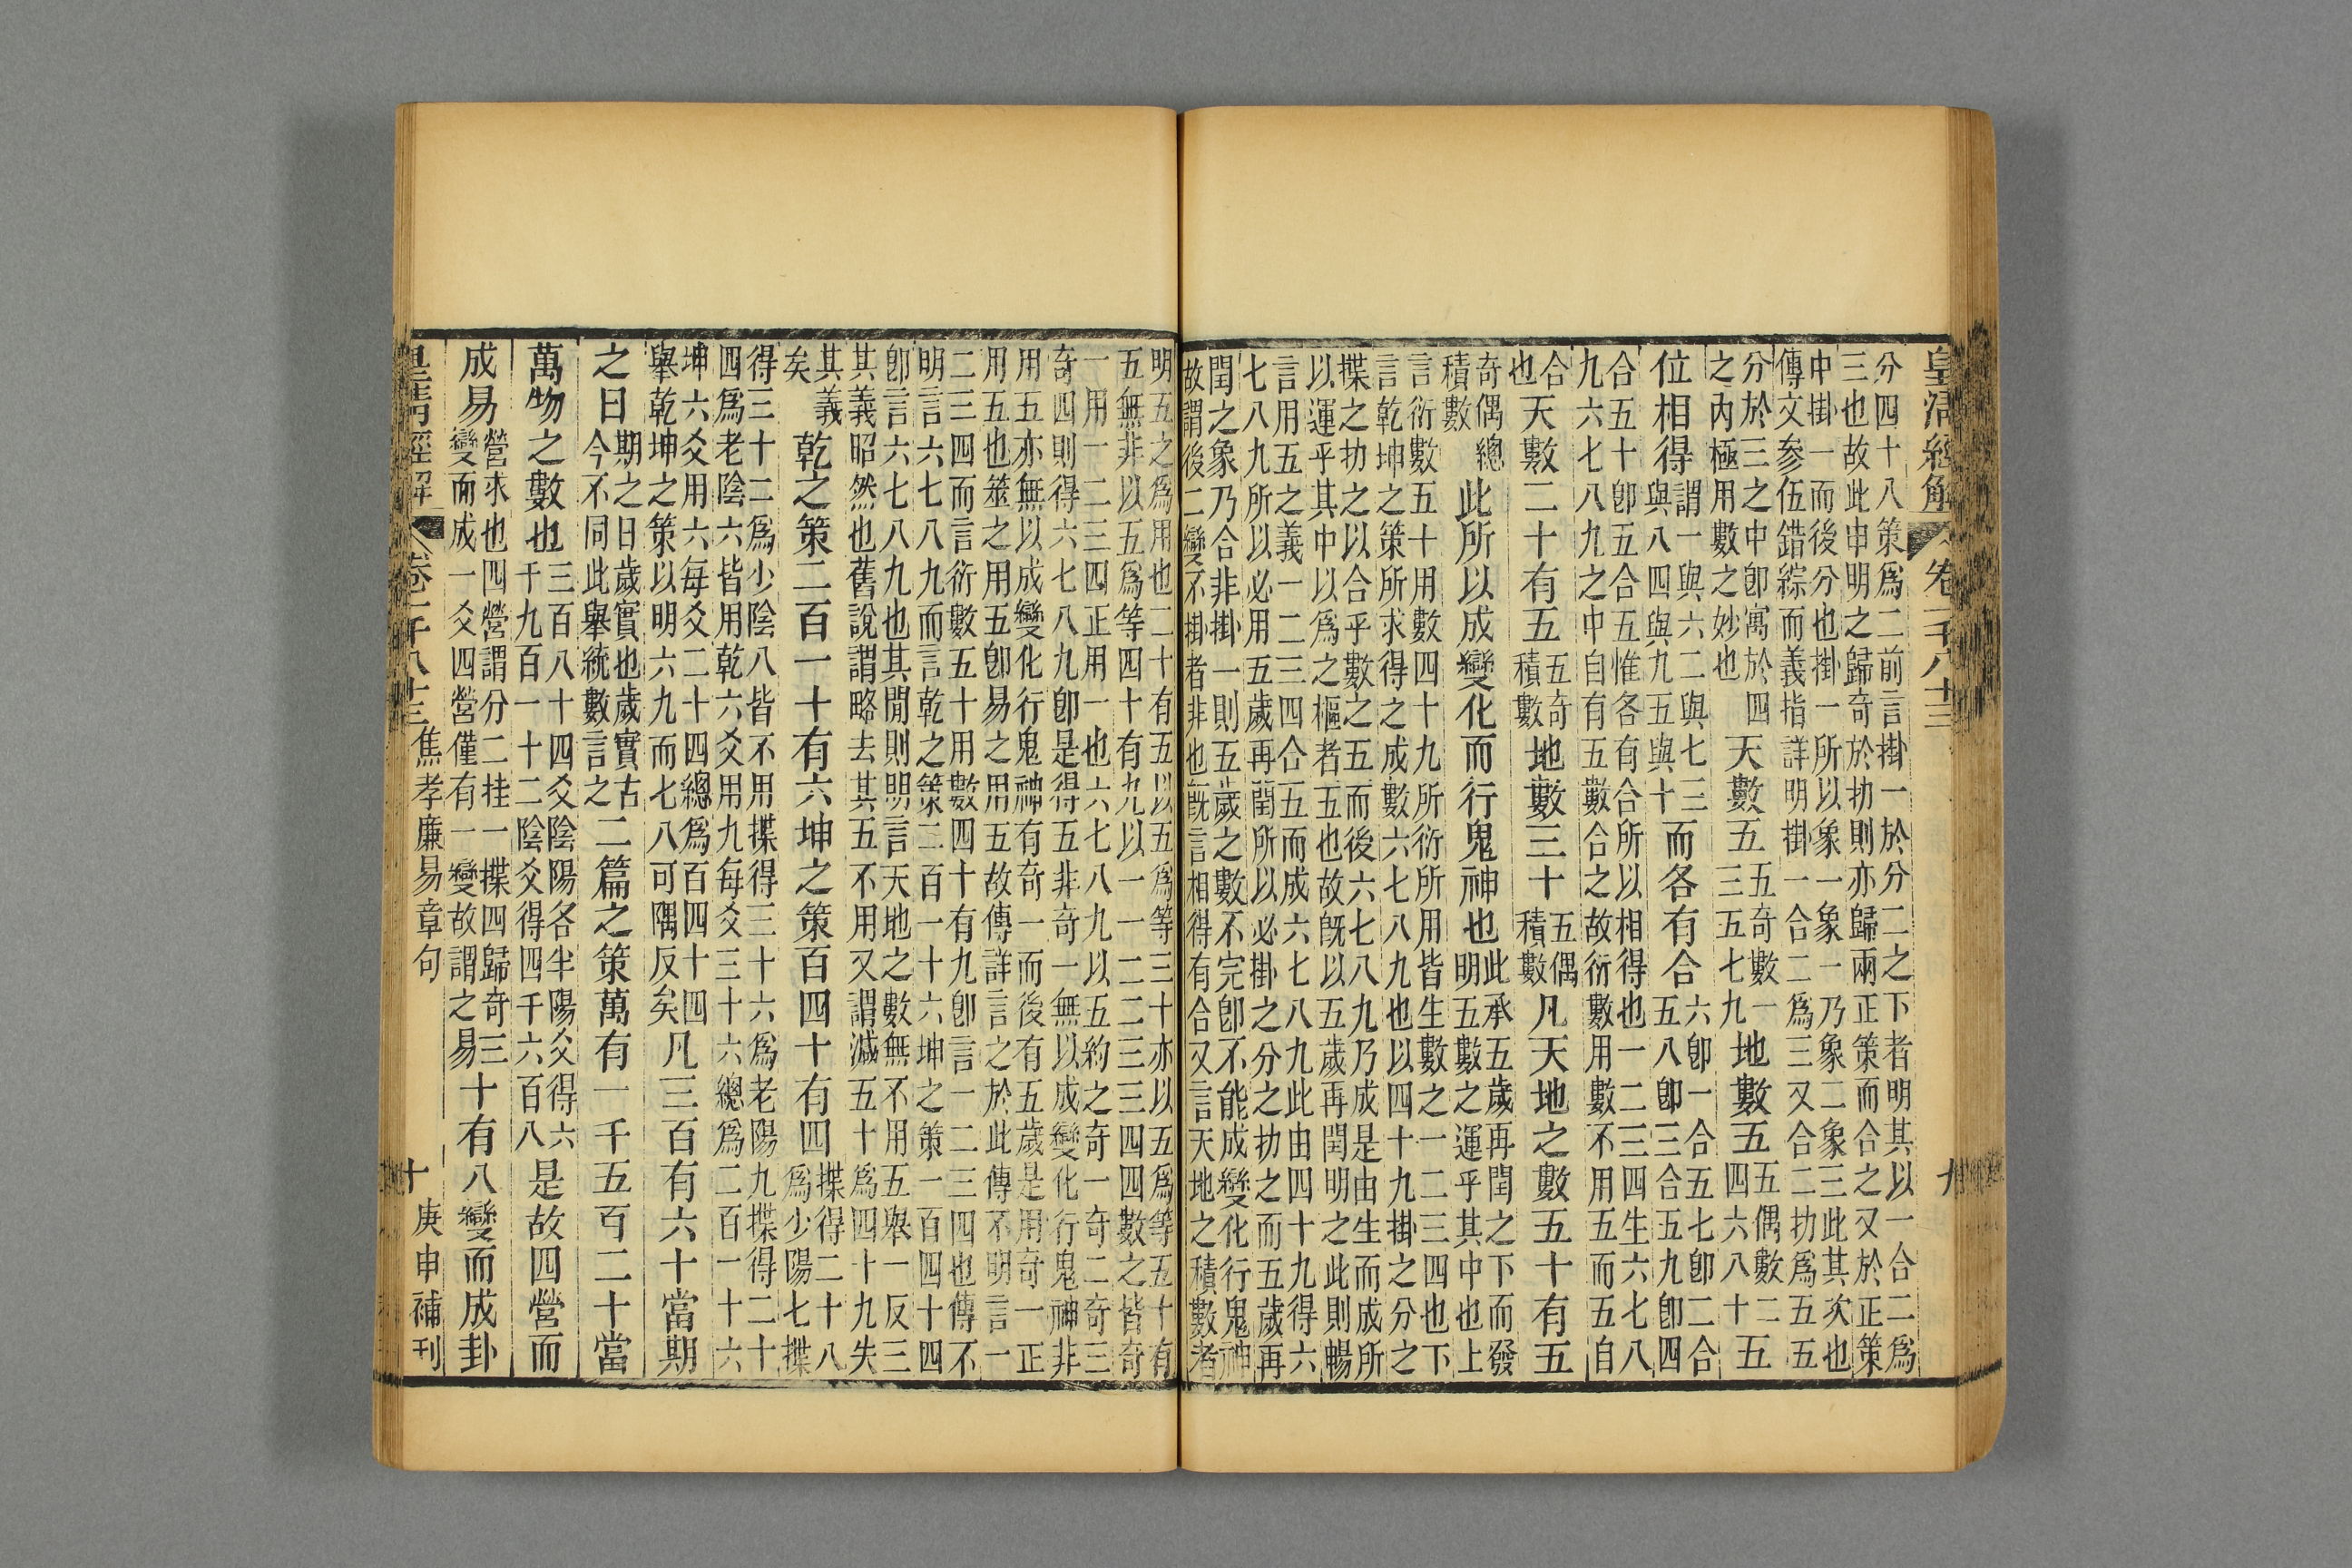 皇清經解
卷一千八十三
九
分四十八策爲二前言掛一於分二之下者明其以一合二爲
三也故此申明之歸奇於扐則亦歸兩正策而合之又於正策
中掛一而後分也掛一所以象一象一乃象二象三此其次也
傳文參伍錯綜而義指詳明掛一合二爲三又合二扐爲五五
分於三之中卽寓於四之內極用數之妙也天數五五奇數一三五七九地數五五偶數二四六八十五
位相得謂一與六二與七三與八四與九五與十而各有合六卽一合五七卽二合五八卽三合五九卽四
合五十卽五合五惟各有合所以相得也一二三四生六七八
九六七八九之中自有五數合之故衍數用數不用五而五自
合也天數二十有五五奇積數地數三十五偶積數凡天地之數五十有五
奇偶總積數此所以成變化而行鬼神也此承五歲再閏之下而發明五數之運乎其中也上
言衍數五十用數四十九所衍所用皆生數之一二三四也下
言乾坤之策所求得之成數六七八九也以四十九掛之分之
揲之扐之以合乎數之五而後六七八九乃成是由生而成所
以運乎其中以爲之樞者五也故旣以五歲再閏明之此則暢
言用五之義一二三四合五而成六七八九此由四十九得六
七八九所以必用五歲再閏所以必掛之分之扐之而五歲再
閏之象乃合非掛一則五歲之數不完卽不能成變化行鬼神
故謂後二變不掛者非也旣言相得有合又言天地之積數者
明五之爲用也二十有五以五爲等三十亦以五爲等五十有
五無非以五爲等四十有九以一一二二三三四四數之皆奇
一用一二三四正用一也六七八九以五約之奇一奇二奇三
奇四則得六七八九卽是得五非奇一無以成變化行鬼神非
用五亦無以成變化行鬼神有奇一而後有五歲是用奇一正
用五也筮之用五卽易之用五故傳詳言之於此傳不明言一
二三四而言衍數五十用數四十有九卽言一二三四也傳不
明言六七八九而言乾之策二百一十六坤之策一百四十四
卽言六七八九也其閒則明言天地之數無不用五舉一反三
其義昭然也舊說謂略去其五不用又謂減五十爲四十九失
其義矣乾之策二百一十有六坤之策百四十有四揲得二十八爲少陽七揲
得三十二爲少陰八皆不用揲得三十六爲老陽九揲得二十
四爲老陰六皆用乾六爻用九每爻三十六總爲二百一十六
坤六爻用六每爻二十四總爲百四十四舉乾坤之策以明六九而七八可隅反矣凡三百有六十當期
之日期之日歲實也歲實古今不同此舉統數言之二篇之策萬有一千五百二十當
萬物之數也三百八十四爻陰陽各半陽爻得六千九百一十二陰爻得四千六百八是故四營而
成易營求也四營謂分二挂一揲四歸奇三變而成一爻四營僅有一變故謂之易十有八變而成卦
皇清經解
卷一千八十三
焦孝廉易章句
十
庚申補刊